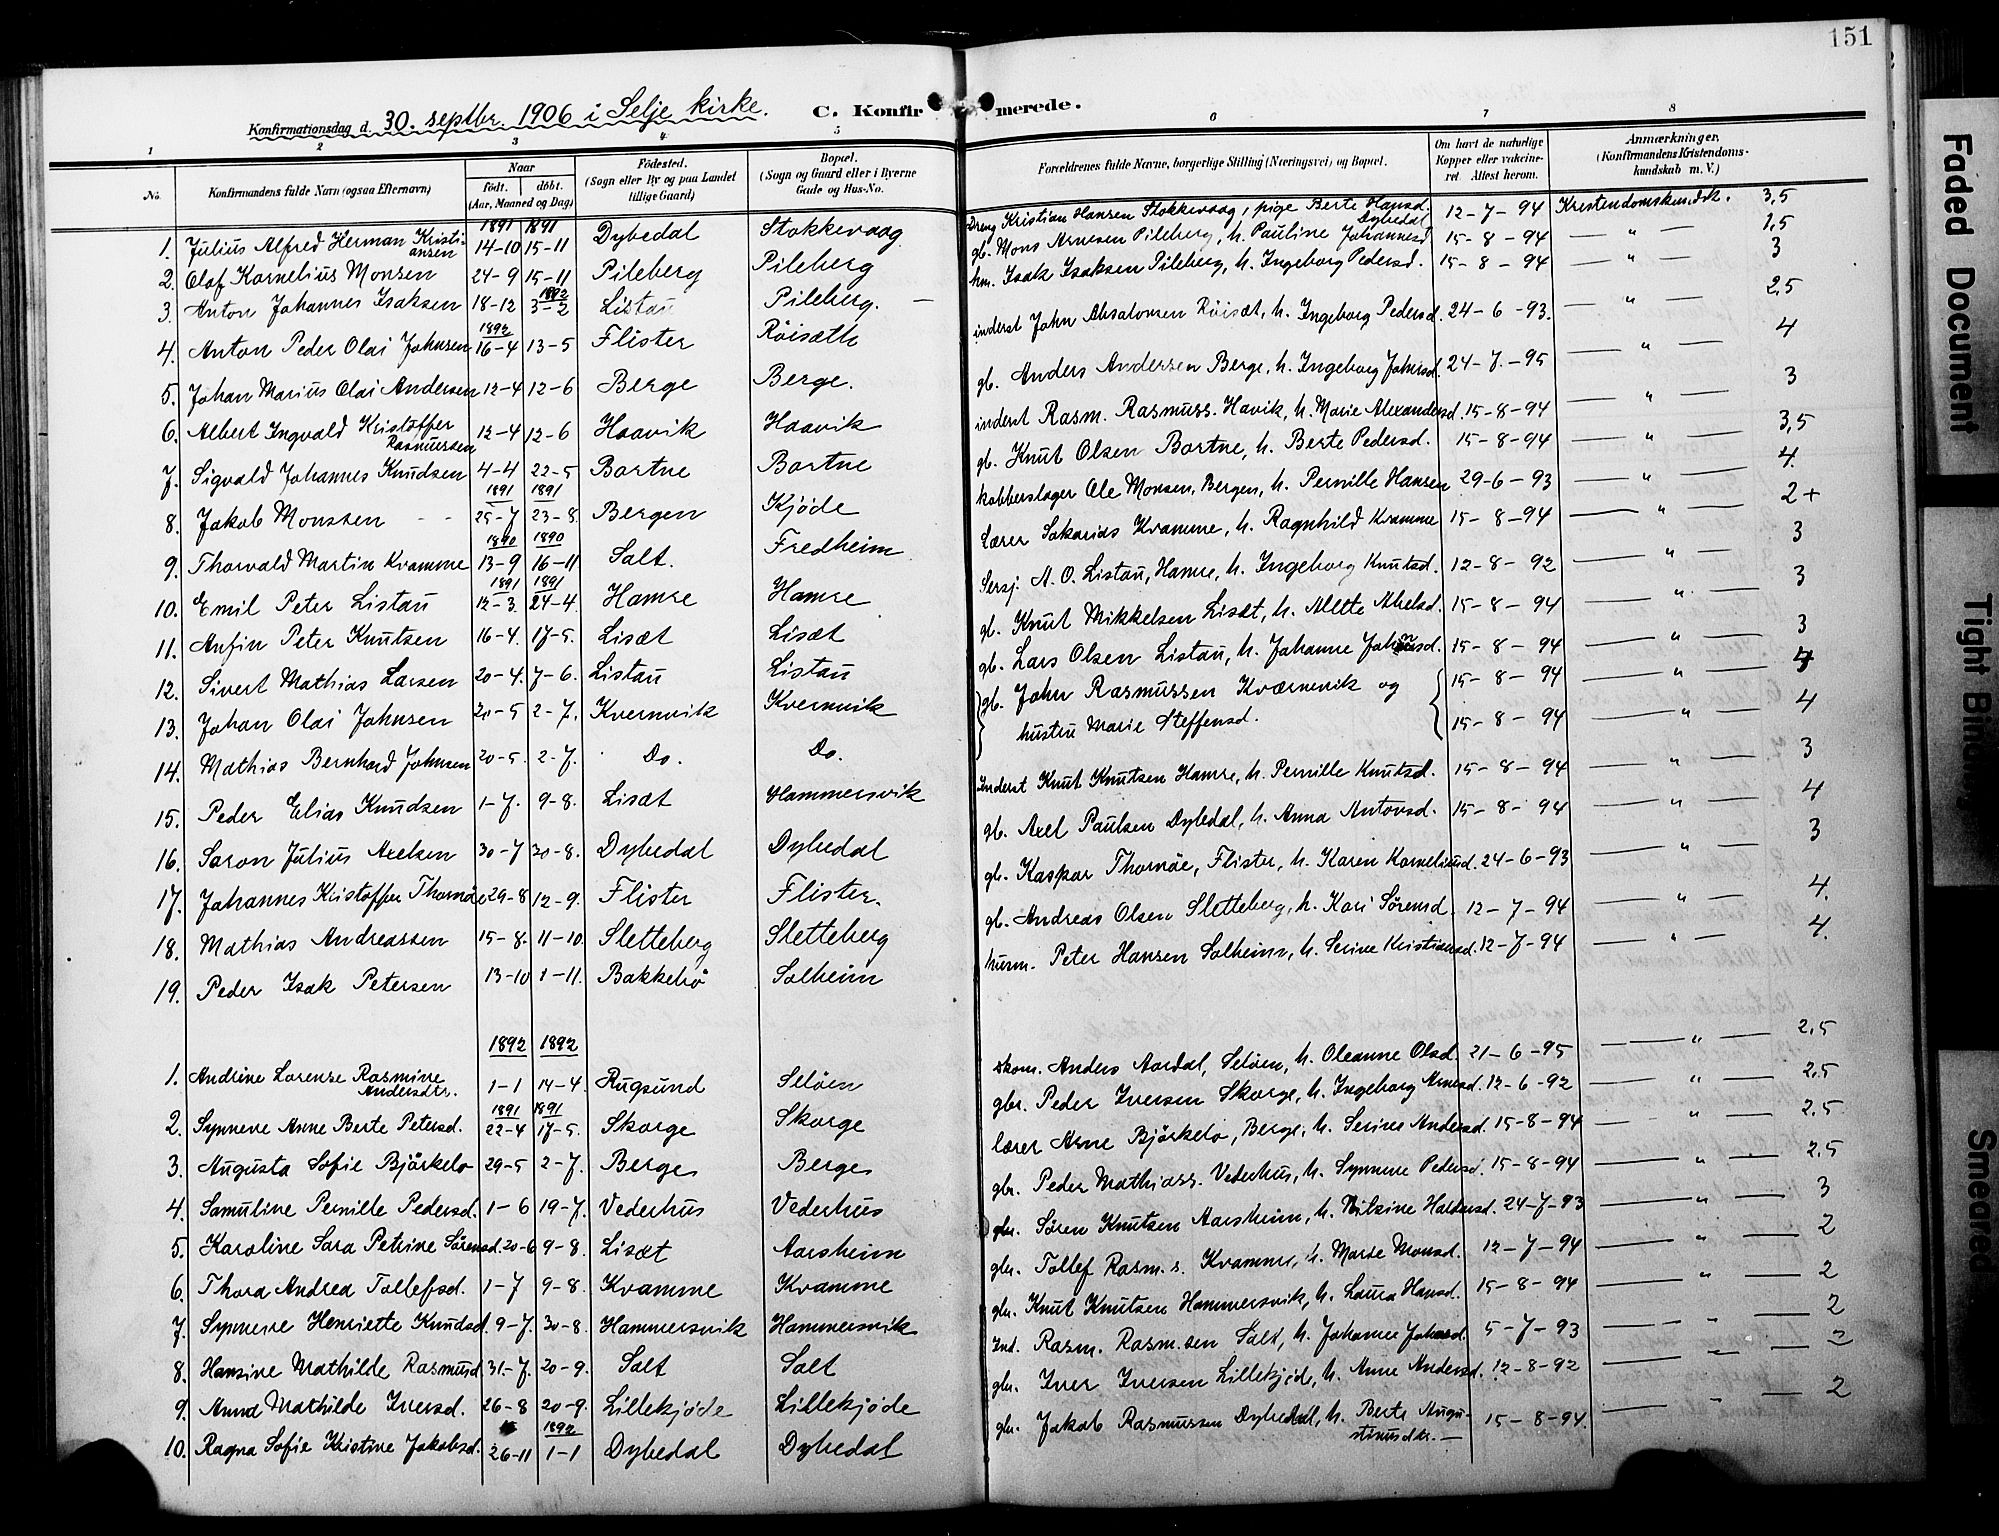 151
Konfirmationsdag d. 30. septbr. 1906 i Selje kirke. C. Konfirmerede.
1 2 3 4 5 6 7 8
No. Konfirmandens fulde Navn (ogsaa Efternavn) Naar født. døbt. (Aar, Maaned og Dag) Födested. (Sogn eller By og paa Landet tillige Gaard) Bopæl. (Sogn og Gaard eller i Byerne Gade og Hus-No. Forældrenes fulde Navne, borgerlige Stilling (Næringsvei) og Bopæl. Om havt de naturlige Kopper eller vakcineret. Attest herom. Anmærkninger, (Konfirmandens Kristendomskundskab m. V.)
1891 1891
1. Julius Alfred Herman Kristiansen 14-10 15-11 Dybedal Stokkevaag Dreng Kristian Hansen Stokkevaag, pige Berte Hansd. Dybedal 12-7-94 Kristendomskundsk. 3,5
2. Olaf Kornelius Monsen 24-9 15-11 Pileberg Pileberg gb. Mons Arnesen Pileberg, h. Pauline Johannesd 15-8-94 — " — 1,5
3. Anton Johannes Isaksen 18-12 1892 3-2 Listau Pileberg. — hm. Isak Isaksen Pileberg, h. Ingeborg Pedersd. 15-8-94 — " — 3
1892
4. Anton Peder Olai Johnsen 16-4 13-5 Flister Röisæth inderst John Absalonsen Röisæt, h. Ingeborg Pedersd. 24-6-93. — " — 2,5
5. Johan Marius Olai Andersen 12-4 12-6 Berge Berge. gb. Anders Andersen Berge, h. Ingeborg Johnsd. 24-7-95 — " — 4
6. Albert Ingvald Kristoffer Rasmussen 12-4 12-6 Haavik Haavik inderst Rasm. Rasmuss. Havik, h. Marie Alexandersd. 15-8-94 — " — 3
7. Sigvald Johannes Knudsen 4-4 22-5 Bortne Bortne gb. Knut Olsen Bortne, h. Berte Pedersd. 15-8-94 — " — 3,5
1891 1891
8. Jakob Monssen - - 25-7 23-8 Bergen Kjøde kobberslager Ole Monsen, Bergen, h. Pernille Hansen 29-6-93 — " — 4.
1890 1890
9. Thorvald Martin Kvamme 13-9 16-11 Salt. Fredheim Lærer Sakarias Kvamme, h. Ragnhild Kvamme 15-8-94 — " — 2+
1891 1891
10. Emil Peter Listau 12-3. 24-4. Hamre Hamre Sersj. A. O. Listau, Hamre, h. Ingeborg Knutsd. 12-8-92 — " — 3
11. Anfin Peter Knutsen 16-4. 17-5. Lisæt Lisæt gb. Knut Mikkelsen Lisæt, h. Alette Abelsd. 15-8-94 — " — 3
12. Sivert Mathias Larsen 20-4. 7-6. Listau Listau gb. Lars Olsen Listau, h. Johanne Johannsd. 15-8-94 — " — 3
13. Johan Olai Johnsen 20-5 2-7. Kvernvik Kvernvik gb. John Rasmussen Kværnevik og 15-8-94 — " — 4
14. Mathias Bernhard Johnsen 20-5. 2-7. Do. Do. hustru Marie Steffensd. 15-8-94 — " — 4
15. Peder Elias Knudsen 1-7. 9-8. Lisæt Hammersvik Inderst Knut Knutsen Hamre, h. Pernille Knutsd. 15-8-94 — " — 3
16. Saron Julius Axelsen 30-7 30-8. Dybedal Dybedal gb. Axel Paulsen Dybedal, h. Anna Antonsd. 15-8-94 — " — 4
17. Johannes Kristoffer Thornöe 29-8 12-9. Flister Flister. gb. Kaspar Thornöe, Flister, h. Karen Korneliusd. 24-6-93 — " — 3
18. Mathias Andreassen 15-8. 11-10. Sletteberg Sletteberg gb. Andreas Olsen Sletteberg, h. Kari Sörensd. 12-7-94 — " — 4.
19. Peder Isak Petersen 13-10 1-11. Bakkebö Solheim husm. Peter Hansen Solheim, h. Serine Kristiansd. 12-7-94 — " — 4.
1892 1892
1. Andrine Lorense Rasmine Andersdtr. 1-1 14-4. Rugsund Selöen skom. Anders Aardal, Selöen, h. Oleanne Olsd. 21-6-95 — " — 2,5
1891 1891
2. Synneve Anne Berte Petersd. 22-4 17-5. Skorge Skorge gbr. Peder Iversen Skorge, h. Ingeborg Arnesd. 12-6-92 — " — 2,5
3. Augusta Sofie Björkelo 29-5 2-7. Berge Berge lærer Arne Björkelo, Berge, h. Serine Andersd. 15-8-94 — " — 2,5
4. Samuline Pernille Pedersd. 1-6 19-7. Vederhus Vederhus gbr. Peder Mathiass. Vederhus, h. Synneve Pedersd. 15-8-94 — " — 2,5
5. Karoline Sara Petrine Sörensd. 20-6 9-8. Lisæt Aarsheim gbr. Sören Knutsen Aarsheim, h. Nilsine Haldorsd. 24-7-93 — " — 3
6. Thora Andrea Tollefsd. 1-7 9-8. Kvamme Kvamme gbr. Tollef Rasm.s. Kvamme, h. Marte Monsd. 12-7-94 — " — 2
7. Synneve Henriette Knudsd. 9-7. 30-8. Hammersvik Hammersvik gbr. Knut Knutsen Hammersvik, h. Laura Hansd. 15-8-94 — " — 2
8. Hansine Mathilde Rasmusd. 31-7. 20-9. Salt Salt Ind. Rasm. Rasm.sen Salt, h. Johanne Johnsd. 5-7-93 — " — 2
9. Anna Mathilde Iversd. 26-8 20-9. Lillekjøde Lillekjøde gbr. Iver Iversen Lillekjøde, h. Anne Andersd. 12-8-92 — " — 2
1892
10. Ragna Sofie Kristine Jakobsd. 26-11 1-1 Dybedal Dybedal gbr. Jakob Rasmussen Dybedal, h. Berte Augustinusdtr. — 15-8-94. — " — 2
Faded Document
Tight Binding
Smeared